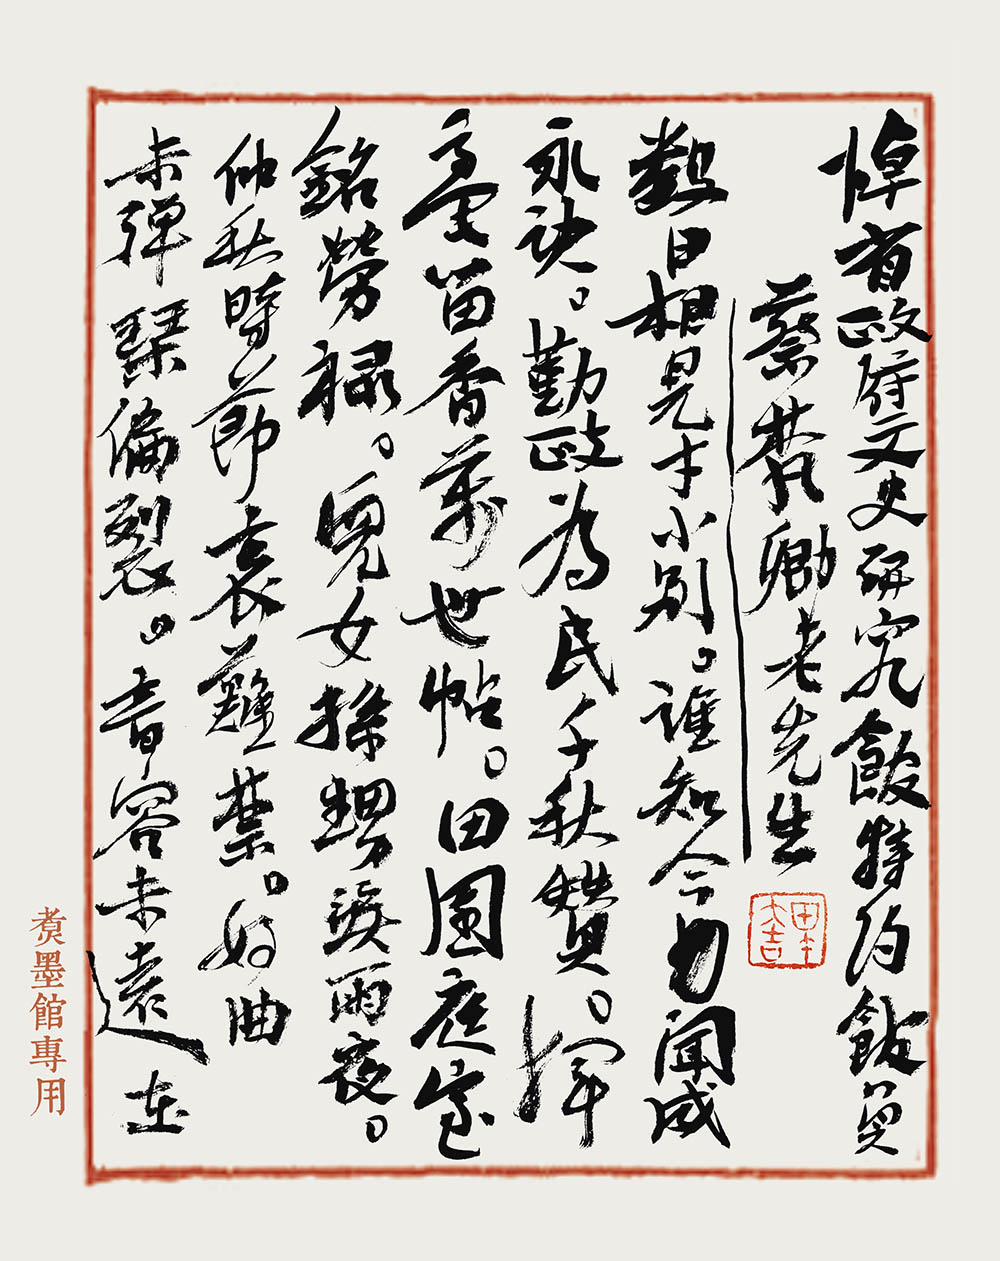 悼省政府文史研究館特約館員
蔡卿老先生
數日相見才小別。誰知今聞成
永訣。勤政為民千秋贊。揮
毫留香萬世帖。田園庭室
銘勞祿。兒女孫甥淚雨夜。
仲秋時節哀難禁。好曲
未彈琴偏裂。音容未遠在
煑墨館專用